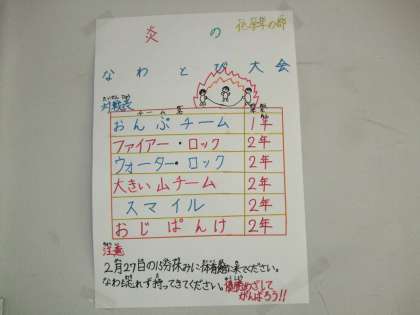 炎の
低学年の部
なわとび大会
対戦表
チーム名 学年
おんぷチーム 1年
ファイアー・ロック 2年
ウォーター・ロック 2年
大きい山チーム 2年
スマイル 2年
おじぱんけ 2年
注意
2月27日の15分休みに体育館に来てください。
なわを忘れず持ってきてください。優勝めざして
がんばろう!!